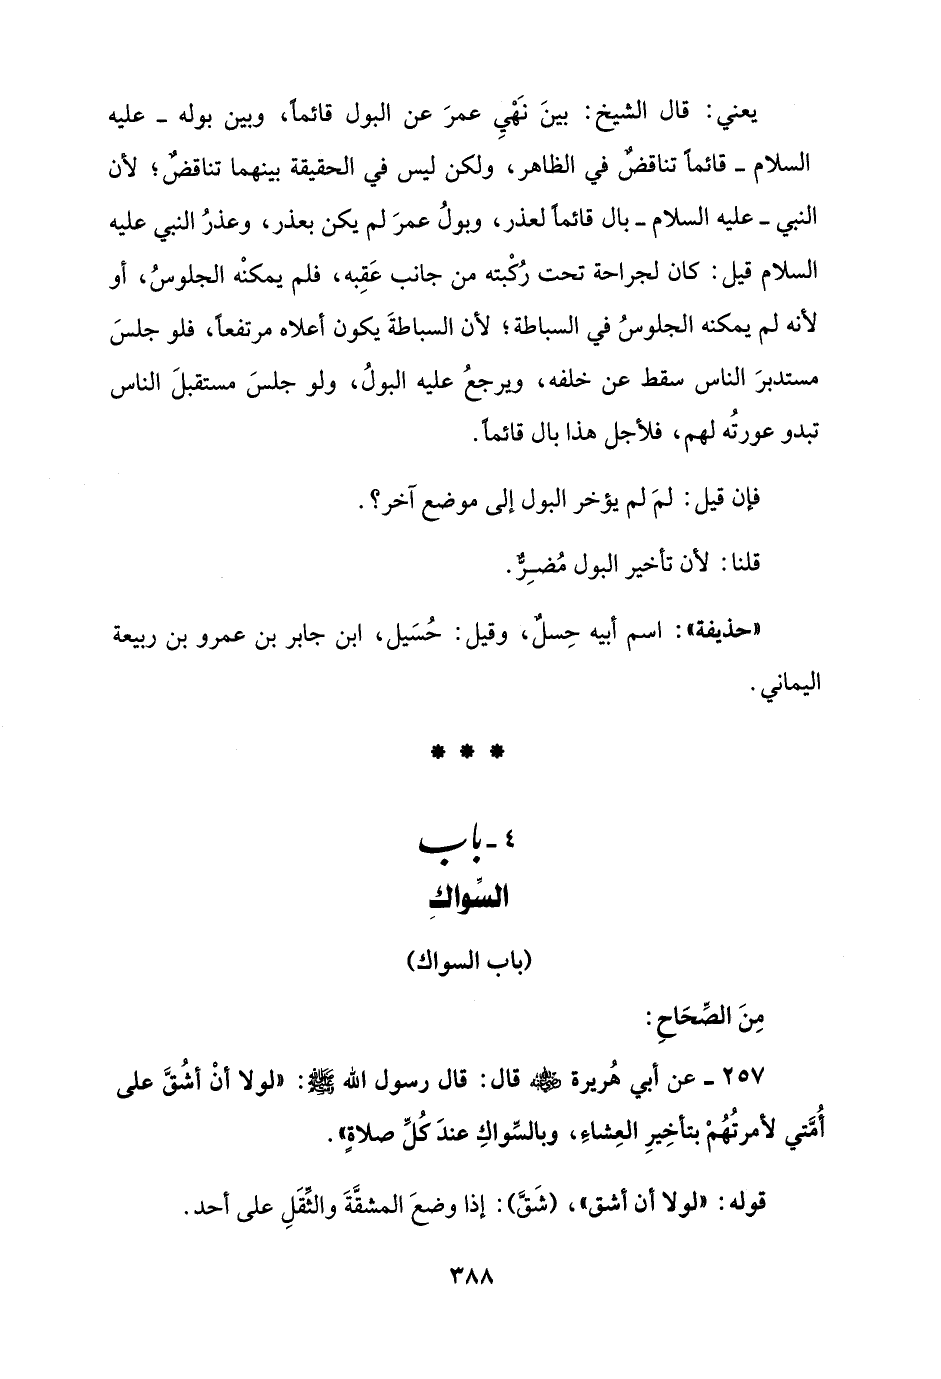 يعني: قال الشيخ: بينَ نَهْيِ عمرَ عن البول قائماً، وبين بوله ـ عليه
السلام ـ قائماً تناقضٌ في الظاهر، ولكن ليس في الحقيقة بينهما تناقضٌ؛ لأن
النبي ـ عليه السلام ـ بال قائماً لعذر، وبولُ عمرَ لم يكن بعذر، وعذرُ النبي عليه
السلام قيل: كان لجراحة تحت رُكْبته من جانب عَقِبه، فلم يمكنْه الجلوسُ، أو
لأنه لم يمكنه الجلوسُ في السباطة؛ لأن السباطةَ يكون أعلاه مرتفعاً، فلو جلسَ
مستدبرَ الناس سقط عن خلفه، ويرجعُ عليه البولُ، ولو جلسَ مستقبلَ الناس
تبدو عورتُه لهم، فلأجل هذا بال قائماً.
فإن قيل: لمَ لم يؤخر البول إلى موضع آخر؟.
قلنا: لأن تأخير البول مُضِرٌّ.
«حذيفة»: اسم أبيه حِسلٌ، وقيل: حُسَيل، ابن جابر بن عمرو بن ربيعة
اليماني.
* * *
٤ - باب
السِّواكِ
(باب السواك)
مِنَ الصِّحَاحِ:
٢٥٧ ـ عن أبي هُريرة ﷺ قال: قال رسول الله ﷺ: «لولا أنْ أشُقَّ على
أُمَّتي لأمرتُهُمْ بتأخِيرِ العِشاءِ، وبالسِّواكِ عندَ كُلِّ صلاةٍ».
قوله: «لولا أن أشق»، (شَقَّ): إذا وضعَ المشقَّةَ والثِّقَلِ على أحد.
٣٨٨